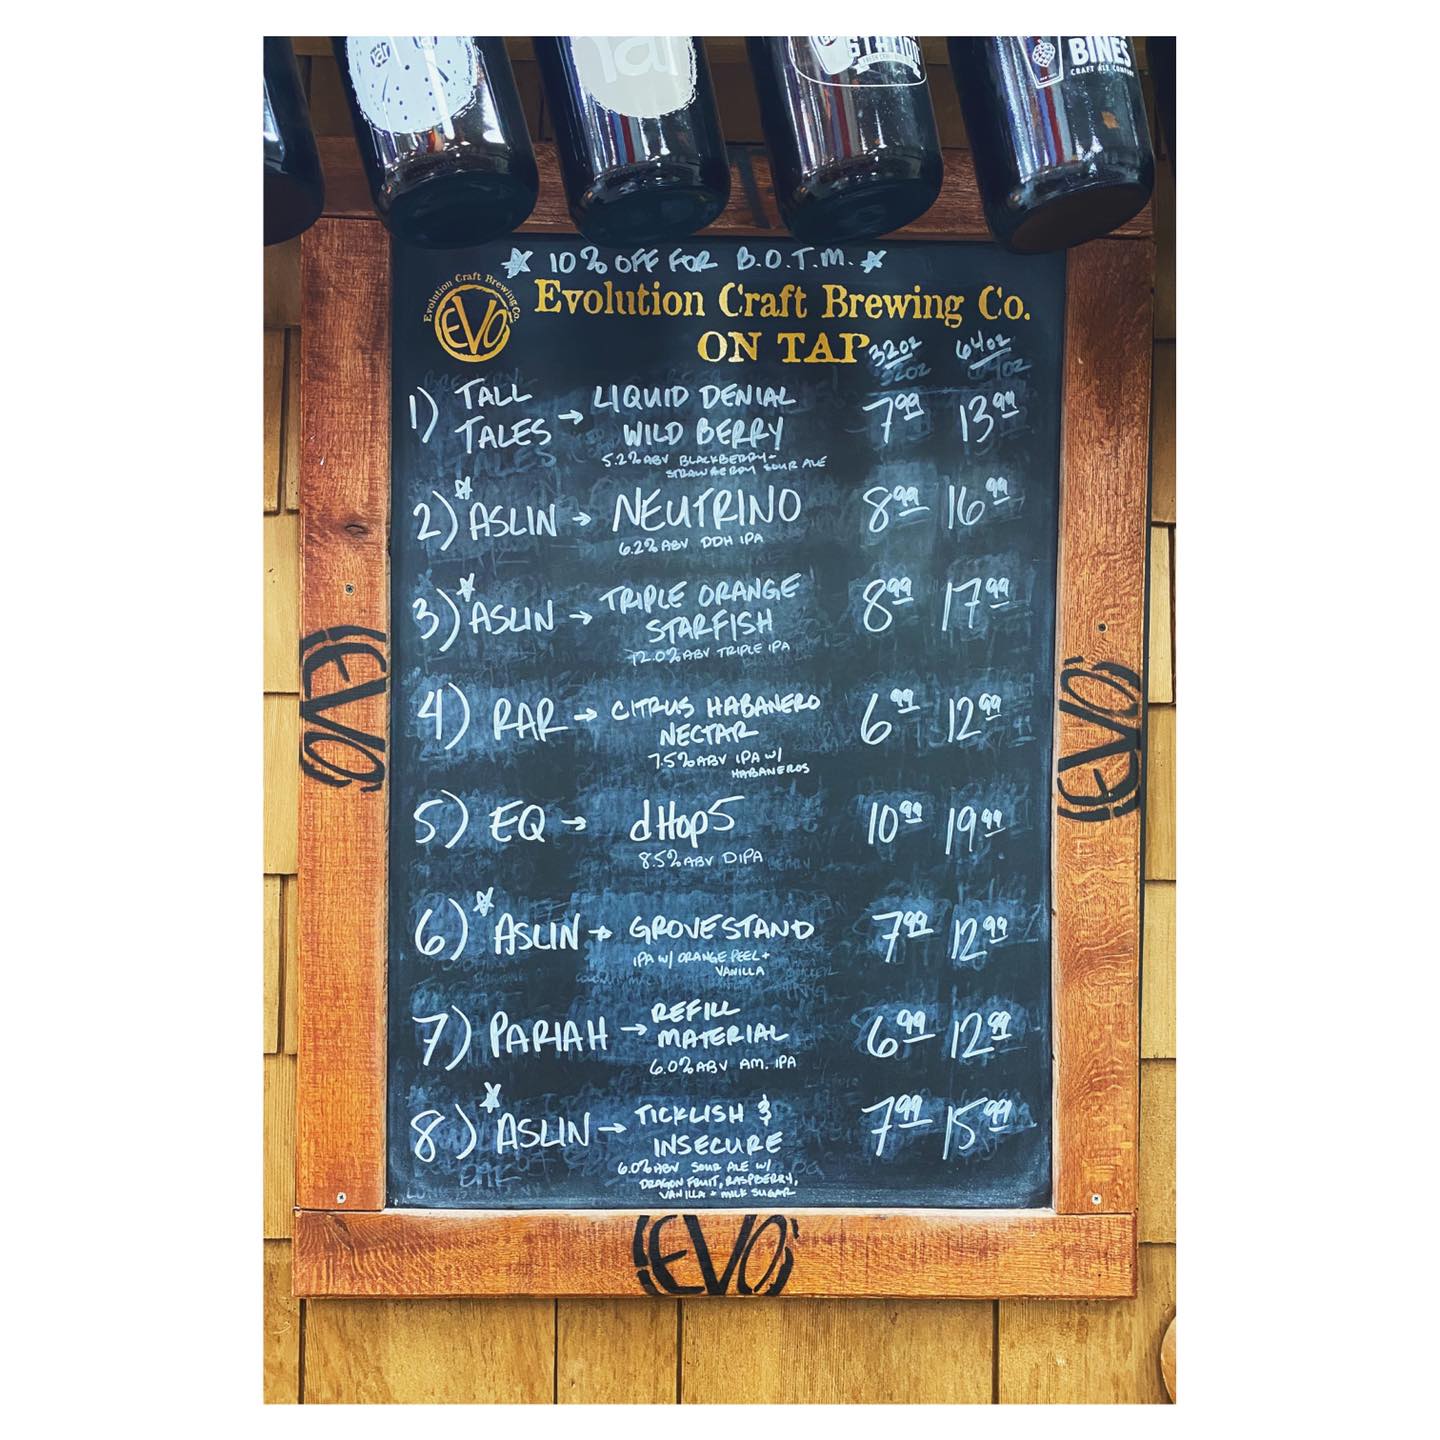 BINES
CRAFT ALE COMPANY
☆ 10% OFF FOR B.O.T.M. ☆
Evolution Craft Brewing Co.
EVO
Evolution Craft Brewing Co.
ON TAP
32oz 64oz
1) TALL TALES → LIQUID DENIAL WILD BERRY 7.99 13.99
5.2% ABV BLACKBERRY + STRAWBERRY SOUR ALE
2) ☆ ASLIN → NEUTRINO 8.99 16.99
6.2% ABV DDH IPA
3) ☆ ASLIN → TRIPLE ORANGE STARFISH 8.99 17.99
12.0% ABV TRIPLE IPA
4) RAR → CITRUS HABANERO NECTAR 6.99 12.99
7.5% ABV IPA W/ HABANEROS
5) EQ → dHop5 10.99 19.99
8.5% ABV DIPA
6) ☆ ASLIN → GROVESTAND 7.99 12.99
IPA W/ ORANGE PEEL + VANILLA
7) PARIAH → REFILL MATERIAL 6.99 12.99
6.0% ABV AM. IPA
8) ☆ ASLIN → TICKLISH & INSECURE 7.99 15.99
6.0% ABV SOUR ALE W/
DRAGON FRUIT, RASPBERRY,
VANILLA + MILK SUGAR
EVO
EVO
EVO